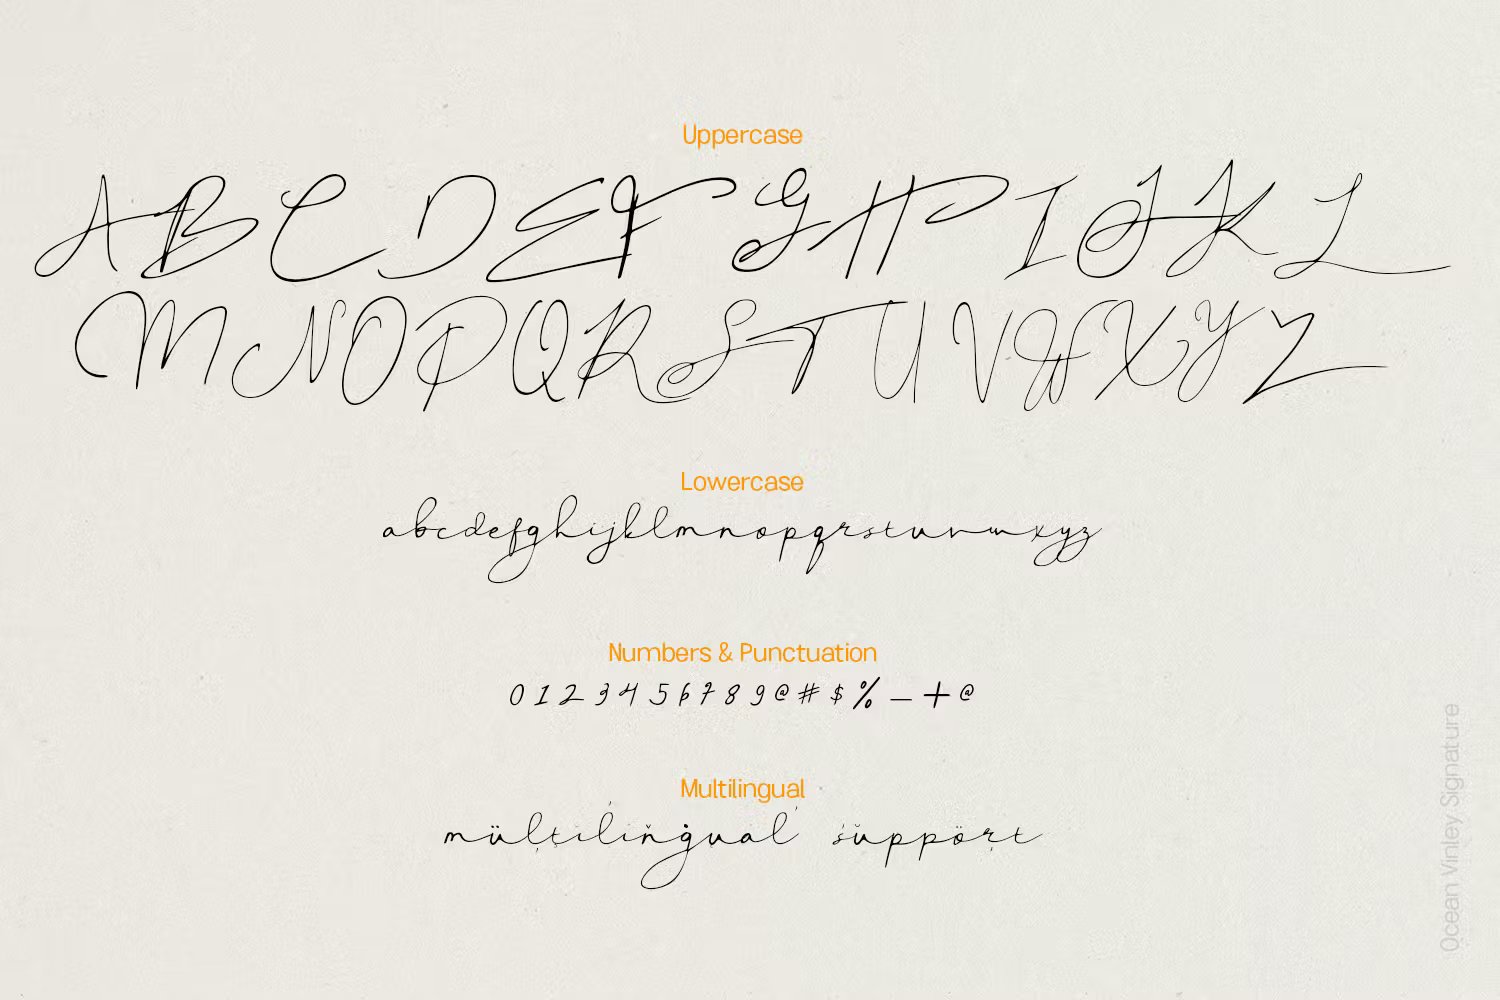 Uppercase
ABCDEFGHIJKL
MNOPQRSTUVWXYZ
Lowercase
abcdefghijklmnopqrstuvwxyz
Numbers & Punctuation
0 1 2 3 4 5 6 7 8 9 @ # $ % _ + @
Multilingual
mültilingual support
Ocean Vinley Signature